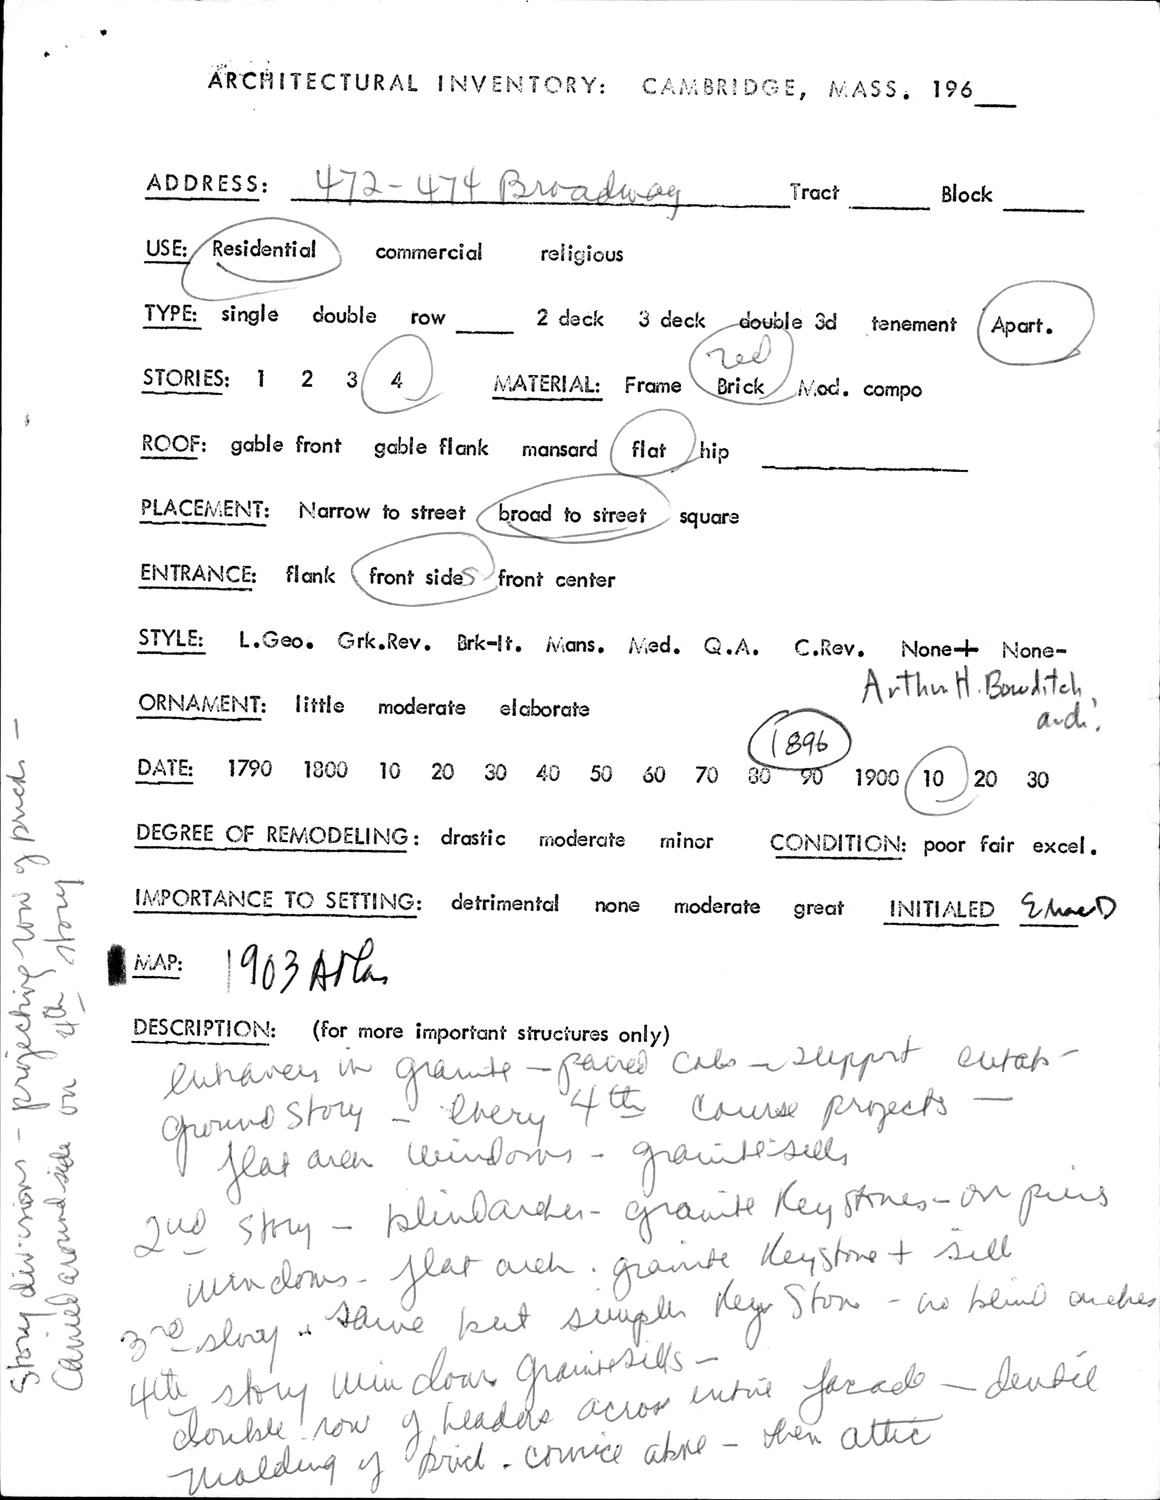 ARCHITECTURAL INVENTORY: CAMBRIDGE, MASS. 196___
ADDRESS: 472-474 Broadway Tract ____ Block ____
USE: Residential commercial religious
TYPE: single double row ____ 2 deck 3 deck double 3d tenement Apart.
red
STORIES: 1 2 3 4 MATERIAL: Frame Brick Mod. compo
ROOF: gable front gable flank mansard flat hip ____
PLACEMENT: Narrow to street broad to street square
ENTRANCE: flank front sides front center
STYLE: L.Geo. Grk.Rev. Brk-It. Mans. Med. Q.A. C.Rev. None+ None-
Arthur H. Bowditch,
ORNAMENT: little moderate elaborate
arch.
1896
DATE: 1790 1800 10 20 30 40 50 60 70 80 90 1900 10 20 30
DEGREE OF REMODELING: drastic moderate minor CONDITION: poor fair excel.
IMPORTANCE TO SETTING: detrimental none moderate great INITIALED
MAP: 1903 Atlas
DESCRIPTION: (for more important structures only)
entrances in granite - paired cols - support entab-
ground story - every 4th course projects -
flat arch windows - granite sills
2nd story - blind arches - granite Keystones - on piers
windows - flat arch. granite Keystone + sill
3rd story - same but simpler Key Stone - no blind arches
4th story windows granite sills -
double row of headers across entire facade - dentil
molding of brick. cornice above - then attic
Story divisions - projecting row of bricks -
Carried around side on 4th story